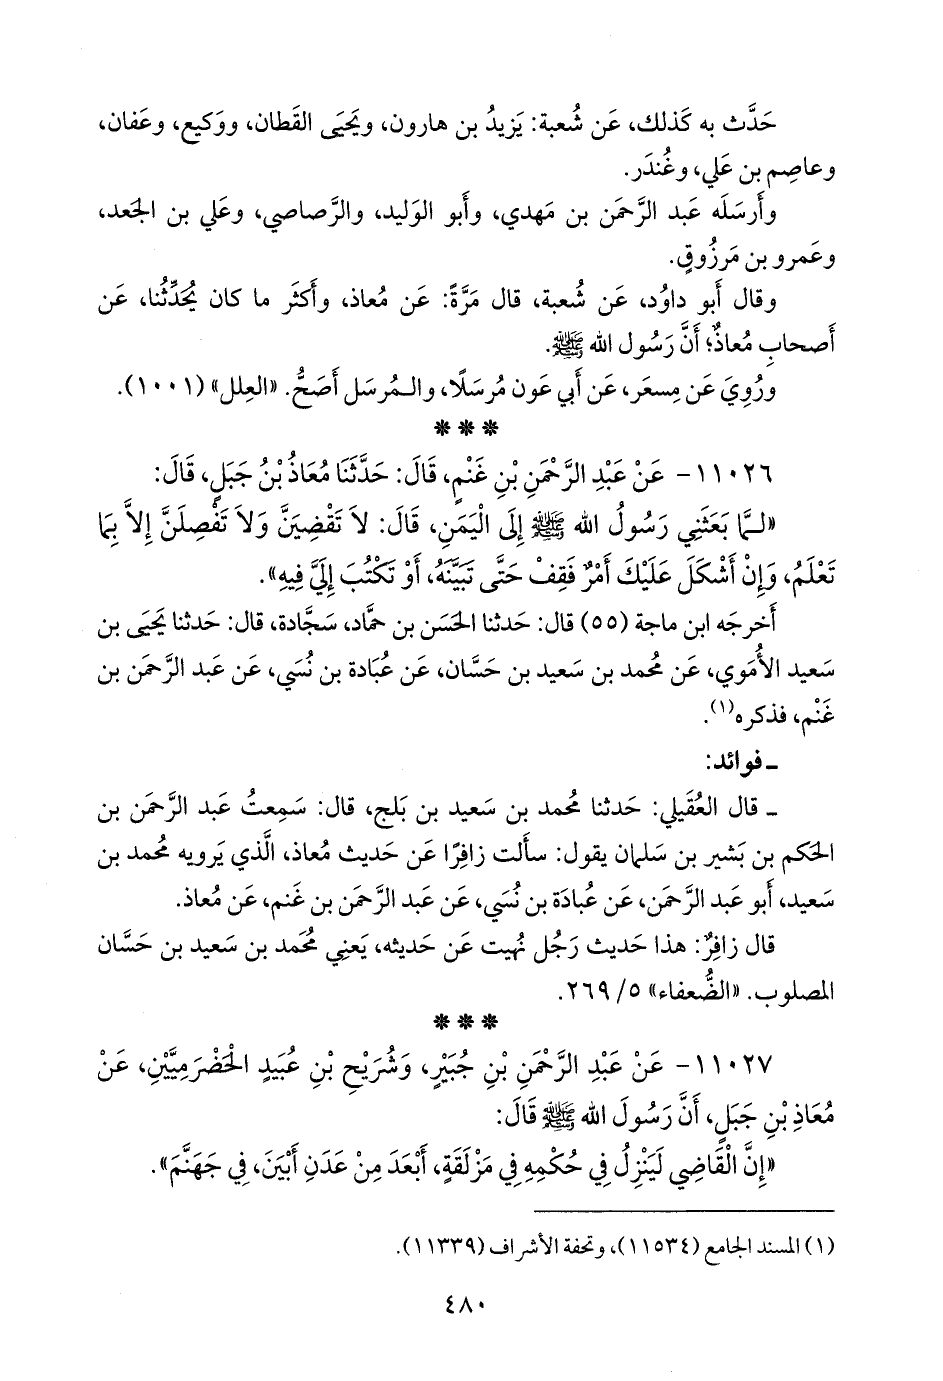 حَدَّث به كَذلك، عَن شُعبة: يَزيدُ بن هارون، ويَحيَى القَطان، ووَكيع، وعَفان،
وعاصِم بن عَلي، وغُندَر.
وأَرسَلَه عَبد الرَّحمَن بن مَهدي، وأَبو الوَليد، والرَّصاصي، وعَلي بن الجَعد،
وعَمرو بن مَرزُوقٍ.
وقال أَبو داوُد، عَن شُعبة، قال مَرَّةً: عَن مُعاذ، وأَكثَر ما كان يُحَدِّثُنا، عَن
أَصحابِ مُعاذٌ؛ أَنَّ رَسُول الله ﷺ.
ورُوِيَ عَن مِسعَر، عَن أَبي عَون مُرسَلًا، والـمُرسَل أَصَحُّ. «العِلل» (١٠٠١).
* * *
١١٠٢٦- عَنْ عَبْدِ الرَّحْمَنِ بْنِ غَنْمٍ، قَالَ: حَدَّثَنَا مُعَاذُ بْنُ جَبَلٍ، قَالَ:
«لـمَّا بَعَثَنِي رَسُولُ الله ﷺ إِلَى الْيَمَنِ، قَالَ: لاَ تَقْضِيَنَّ وَلاَ تَفْصِلَنَّ إِلاَّ بِمَا
تَعْلَمُ، وَإِنْ أَشْكَلَ عَلَيْكَ أَمْرٌ فَقِفْ حَتَّى تَبَيَّنَهُ، أَوْ تَكْتُبَ إِلَيَّ فِيهِ».
أَخرجَه ابن ماجة (٥٥) قال: حَدثنا الحَسَن بن حمَّاد، سَجَّادة، قال: حَدثنا يَحيَى بن
سَعيد الأُمَوي، عَن مُحمد بن سَعيد بن حَسَّان، عَن عُبَادة بن نُسَي، عَن عَبد الرَّحمَن بن
غَنْم، فذكره(١).
ـ فوائد:
ـ قال العُقَيلي: حَدثنا مُحمد بن سَعيد بن بَلج، قال: سَمِعتُ عَبد الرَّحمَن بن
الحَكم بن بَشير بن سَلمان يقول: سأَلت زافِرًا عَن حَديث مُعاذ، الَّذي يَرويه مُحمد بن
سَعيد، أَبو عَبد الرَّحمَن، عَن عُبادَة بن نُسَي، عَن عَبد الرَّحمَن بن غَنم، عَن مُعاذ.
قال زافِرٌ: هذا حَديث رَجُل نُهيت عَن حَديثه، يَعني مُحمد بن سَعيد بن حَسَّان
المصلوب. «الضُّعفاء» ٥/ ٢٦٩.
* * *
١١٠٢٧- عَنْ عَبْدِ الرَّحْمَنِ بْنِ جُبَيْرٍ، وَشُرَيْحِ بْنِ عُبَيدٍ الْحَضْرَمِيَّيْنِ، عَنْ
مُعَاذِ بْنِ جَبَلٍ، أَنَّ رَسُولَ الله ﷺ قَالَ:
«إِنَّ الْقَاضِي لَيَنْزِلُ فِي حُكْمِهِ فِي مَزْلَقَةٍ، أَبْعَدَ مِنْ عَدَنِ أَبْيَنَ، فِي جَهَنَّمَ».
(١) المسند الجامع (١١٥٣٤)، وتحفة الأشراف (١١٣٣٩).
٤٨٠